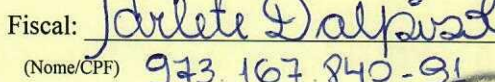 Fiscal: Jarlete Dalpiaz
(Nome/CPF) 973.167.840-91